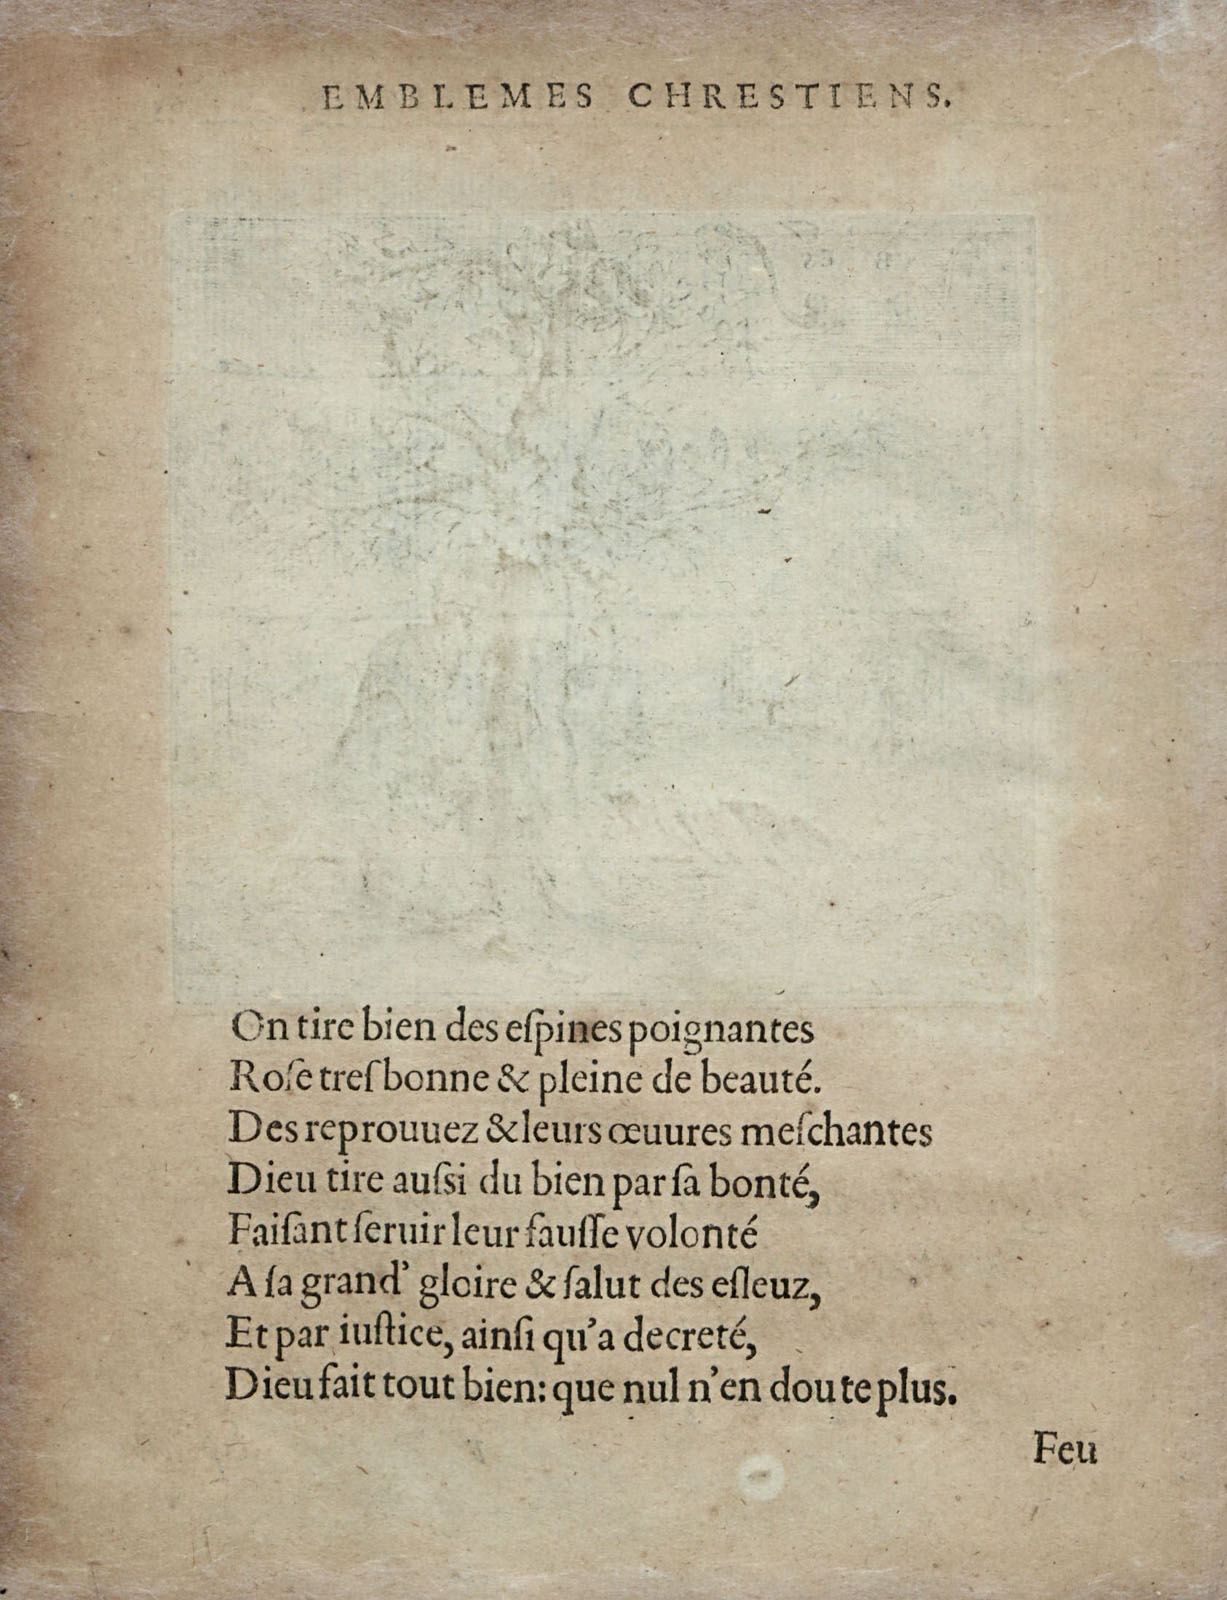 EMBLEMES CHRESTIENS.
On tire bien des eſpines poignantes
Roſe treſbonne & pleine de beauté.
Des reprouuez & leurs œuures meſchantes
Dieu tire auſsi du bien par ſa bonté,
Faiſant ſeruir leur fauſſe volonté
A ſa grand' gloire & ſalut des eſleuz,
Et par iuſtice, ainſi qu'a decreté,
Dieu fait tout bien: que nul n'en doute plus.
Feu